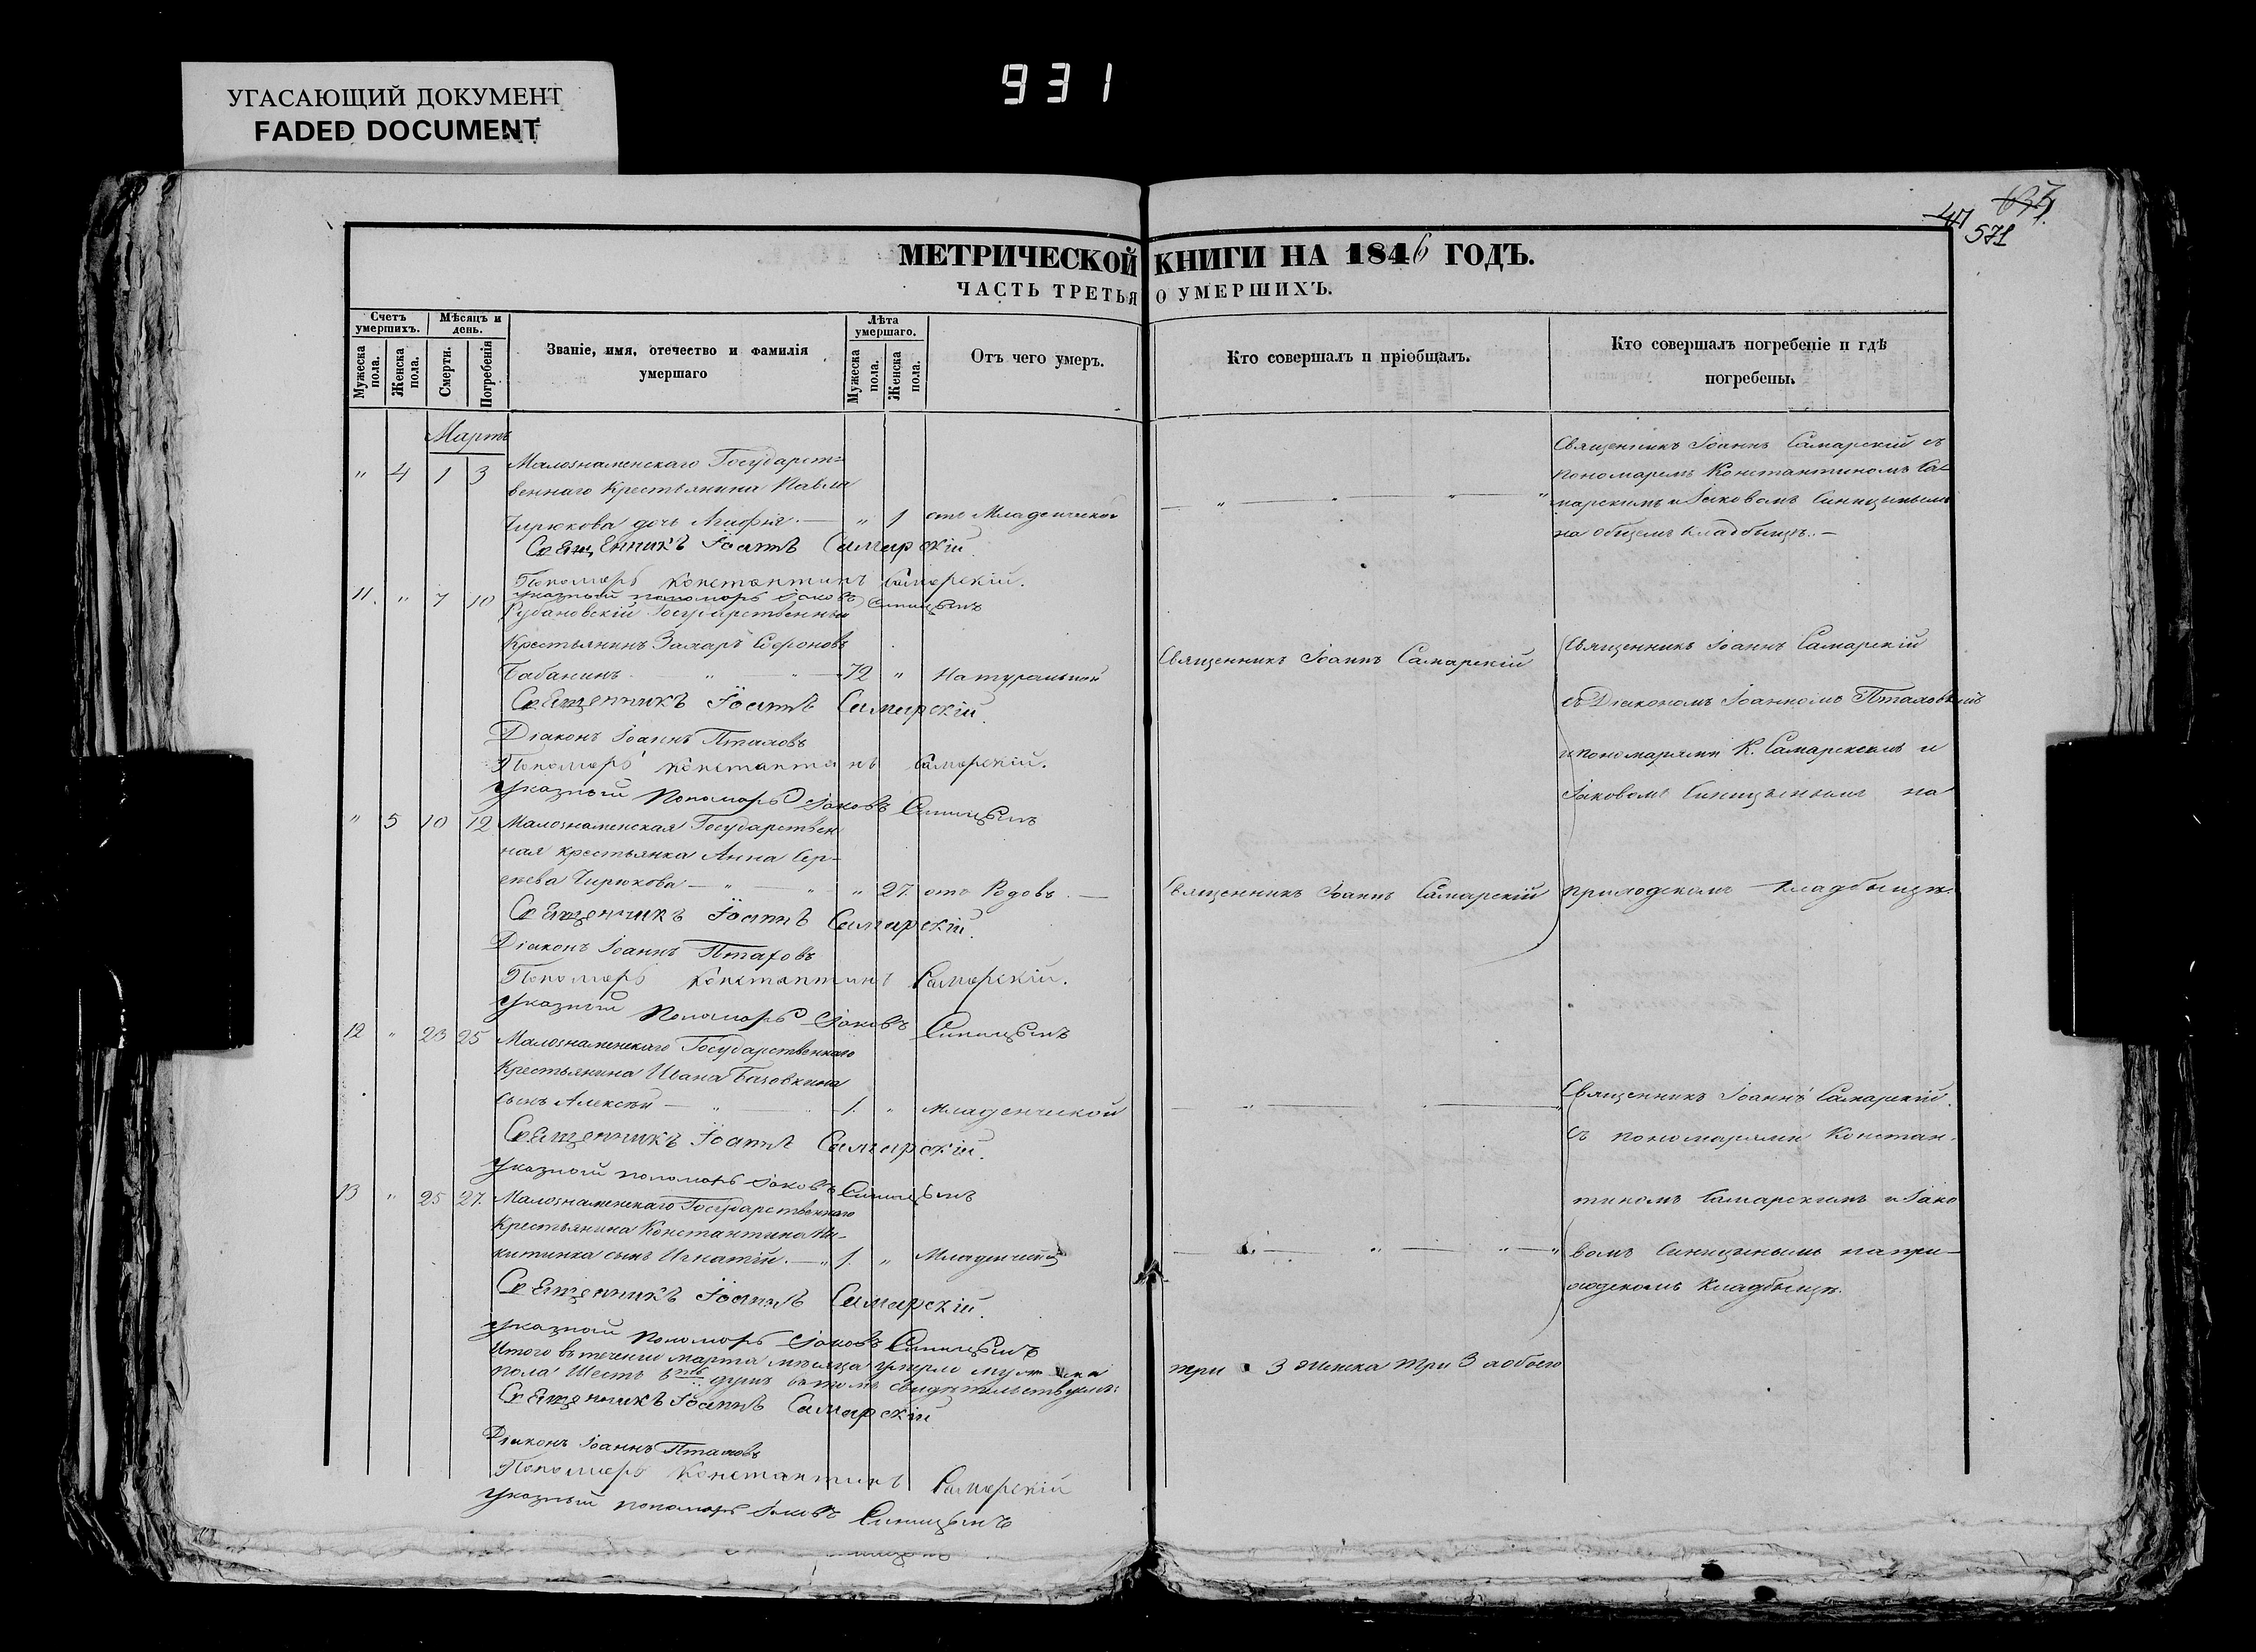 УГАСАЮЩИЙ ДОКУМЕНТ
FADED DOCUMENT
931
571
МЕТРИЧЕСКОЙ КНИГИ НА 1846 ГОДЪ.
ЧАСТЬ ТРЕТЬЯ О УМЕРШИХЪ.
Счетъ умершихъ.
Мужеска пола.
Женска пола.
Мѣсяцъ и день.
Смерти.
Погребенія
Званіе, имя, отечество и фамилія умершаго
Лѣта умершаго.
Мужеска пола.
Женска пола.
Отъ чего умеръ.
Кто совершалъ и пріобщалъ.
Кто совершалъ погребеніе и гдѣ
погребены.
Мартъ
" 4 1 3 Малознаменскаго Государст=
веннаго Крестьянина Павла
Чирюкова дочь " 1 отъ Младенческой
Священникъ Іоаннъ Самарскій с
пономаремъ Константиномъ Са-
марскимъ и Іаковомъ Синицынымъ
на общемъ кладбищѣ. —
Священникъ Іоаннъ Самарскій.
Пономарь Константинъ Самарскій.
Указный пономарь Іаковъ Синицынъ
11. " 7 10 Рубановскій Государственный
Крестьянинъ Захаръ Софроновъ
Бабанинъ 72 " Натуральной
Священникъ Іоаннъ Самарскій
Священникъ Іоаннъ Самарскій
съ Діакономъ Іоанномъ Птаховымъ
и пономарями К. Самарскимъ и
Іаковомъ Синицынымъ на
приходскомъ кладбищѣ.
Священникъ Іоаннъ Самарскій.
Діаконъ Іоаннъ Птаховъ
Пономарь Константинъ Самарскій.
Указный Пономарь Іаковъ Синицынъ
" 5 10 12 Малознаменская Государствен
ная крестьянка Анна Сер-
геева Чирюкова — " " 27. отъ Родовъ. —
Священникъ Іоаннъ Самарскій
Священникъ Іоаннъ Самарскій.
Діаконъ Іоаннъ Птаховъ
Пономарь Константинъ Самарскій.
Указный Пономарь Іаковъ Синицынъ
12 " 23 25 Малознаменскаго Государственнаго
Крестьянина Ивана Базовкина
сынъ Алексѣй — 1. " Младенческой
Священникъ Іоаннъ Самарскій.
съ пономарями Констан-
тиномъ Самарскимъ и Іако
вомъ Синицынымъ на при-
ходскомъ кладбищѣ.
Священникъ Іоаннъ Самарскій.
Указный пономарь Іаковъ Синицынъ
13 " 25 27. Малознаменскаго Государственнаго
Крестьянина Константина Ни-
китина сынъ Игнатій. — 1. "
Священникъ Іоаннъ Самарскій.
Указный Пономарь Іаковъ Синицынъ
Итого в теченіи марта мѣсяца умерло мужеска три 3 женска три 3 а обоего
пола Шесть 6ть душъ въ томъ свидѣтельствуемъ:
Священникъ Іоаннъ Самарскій
Діаконъ Іоаннъ Птаховъ
Пономарь Константинъ Самарскій
Указный пономарь Іаковъ Синицынъ